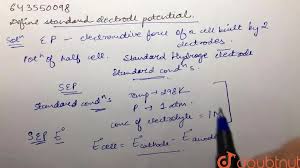 643550098
Define standard electrode potential.
Solⁿ EP – electromotive force of a cell built by 2
electrodes.
Potⁿ of half cell. Standard Hydrogen electrode
Standard condⁿs.
SEP
Standard condⁿs Temp → 298K
P → 1 atm
conc of electrolyte = 1M
SEP E°
E°cell = E°cathode – E°anode
doubtnut